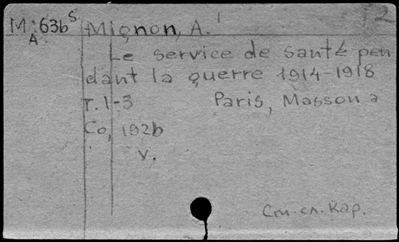 M:63b s Mignon, A. 1
A.
Le service de santé pen
dant la guerre 1914-1918
T. 1-3 Paris, Masson a
Co, 192b
v.
См. сл. кар.